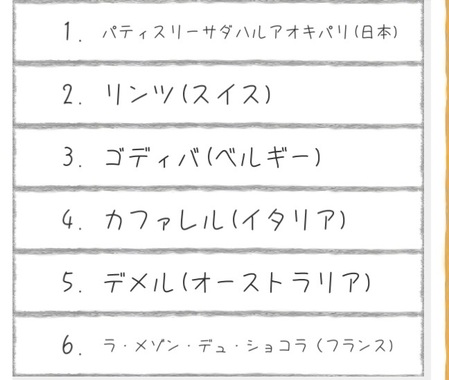 1. パティスリーサダハルアオキパリ(日本)
2. リンツ(スイス)
3. ゴディバ(ベルギー)
4. カファレル(イタリア)
5. デメル(オーストラリア)
6. ラ・メゾン・デュ・ショコラ(フランス)